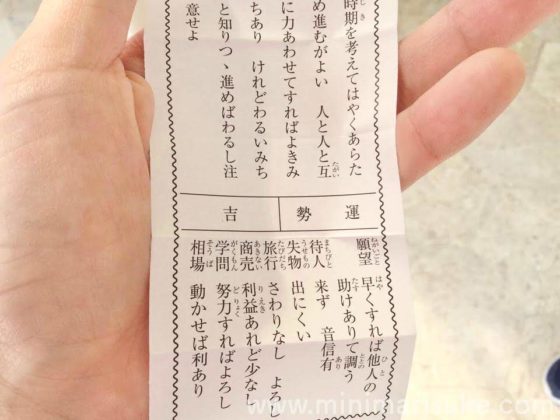 時期を考えてはやくあらた
め進むがよい 人と人と互
に力あわせてすればよきみ
ちあり けれどわるいみち
と知りつゝ進めばわるし注
意せよ
運勢
吉
願望 早くすれば他人の
助けありて調う
待人 来ず 音信有
失物 出にくい
旅行 さわりなし よろ
商売 利益あれど少なし
学問 努力すればよろし
相場 動かせば利あり
www.minimarisuke.com